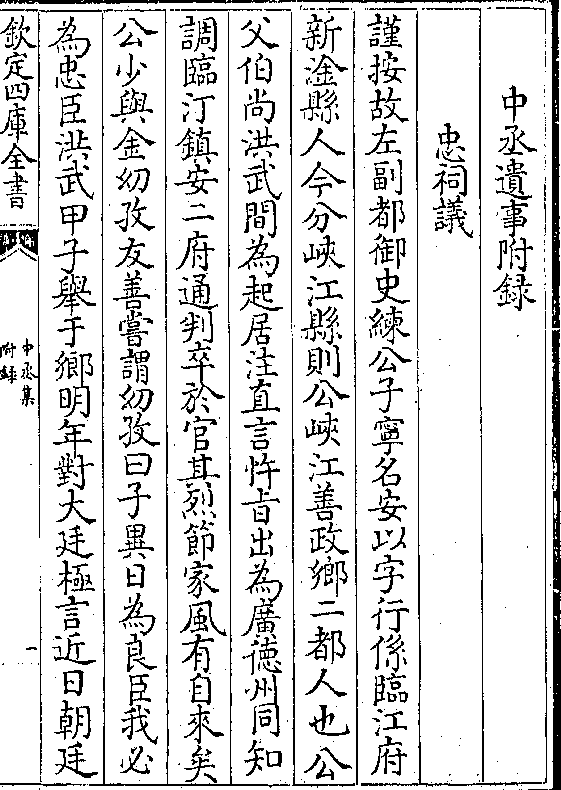 中丞遺事附録
忠祠議
謹按故左副都御史練公子寧名安以字行係臨江府
新淦縣人今分峽江縣則公峽江善政鄉二都人也公
父伯尚洪武間為起居注直言忤旨出為廣徳州同知
調臨汀鎮安二府通判卒於官其烈節家風有自來矣
公少與金幼孜友善嘗謂幼孜曰子異日為良臣我必
為忠臣洪武甲子舉于鄉明年對大廷極言近日朝廷
欽定四庫全書
中丞集
附録
一